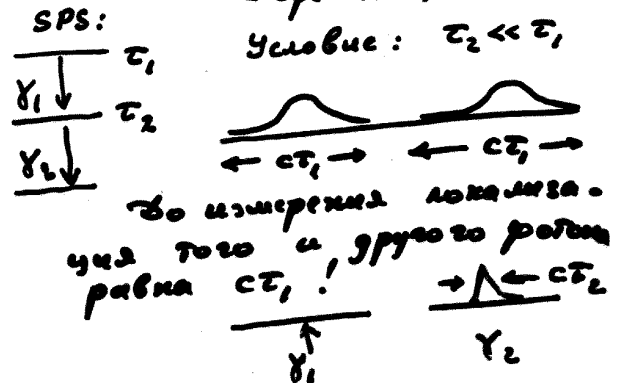 SPS:
Условие: τ₂ << τ₁
τ₁
γ₁
τ₂
γ₂
cτ₁ cτ₁
До измерения локализа-
ция того и другого фотона
равна cτ₁!
cτ₂
γ₁ γ₂